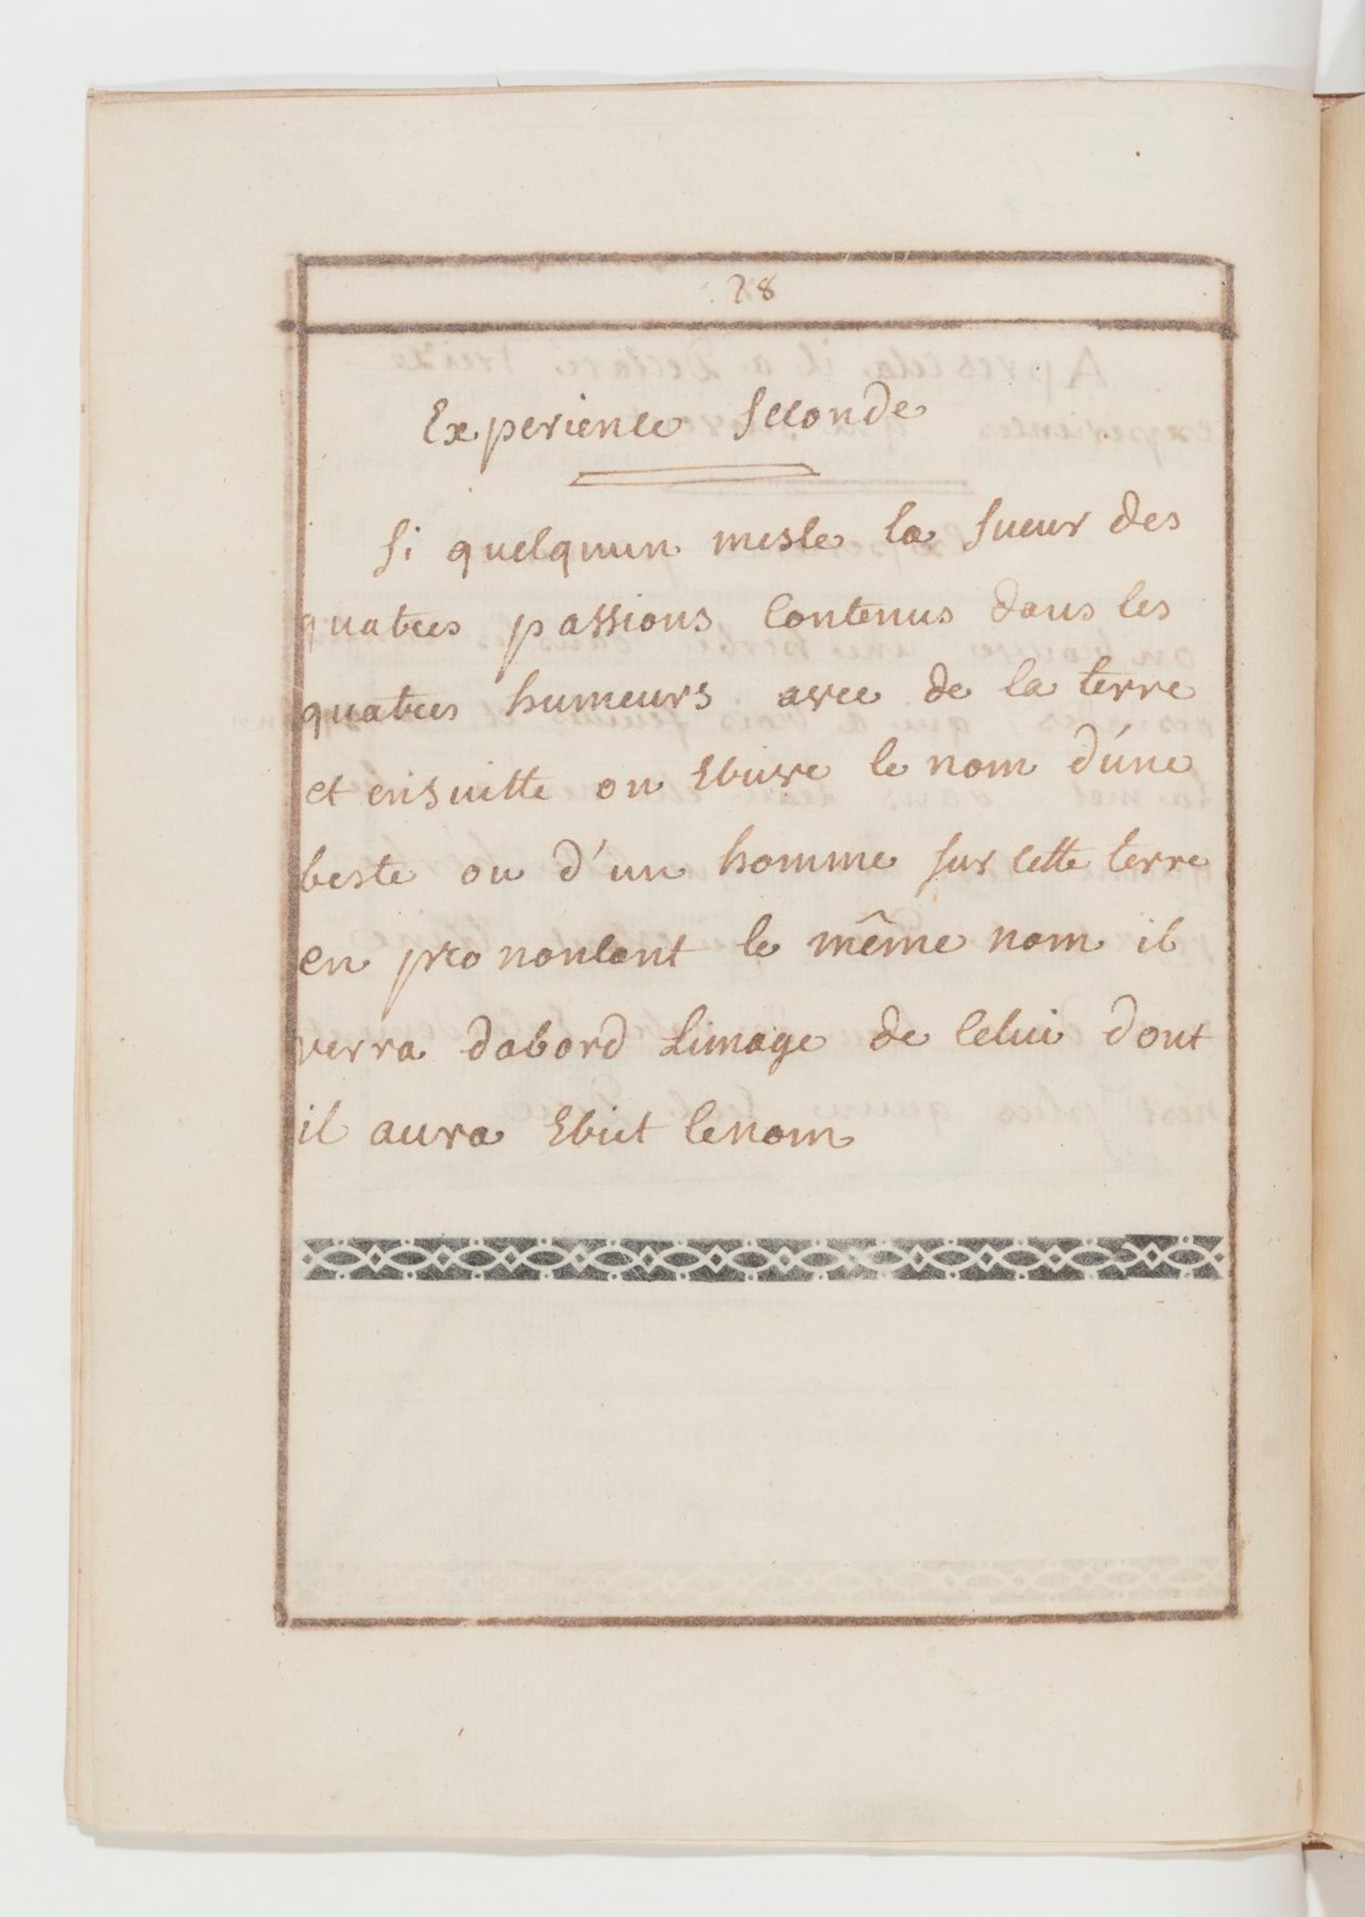 28
Experience seconde
si quelquun mesle la sueur des
quatres passions contenus dans les
quatres humeurs avec de la terre
et ensuitte on Ebuve le nom d'une
beste ou d'un homme sur cette terre
en prononcant le même nom il
verra dabord Limage de celui dont
il aura Ebut le nom